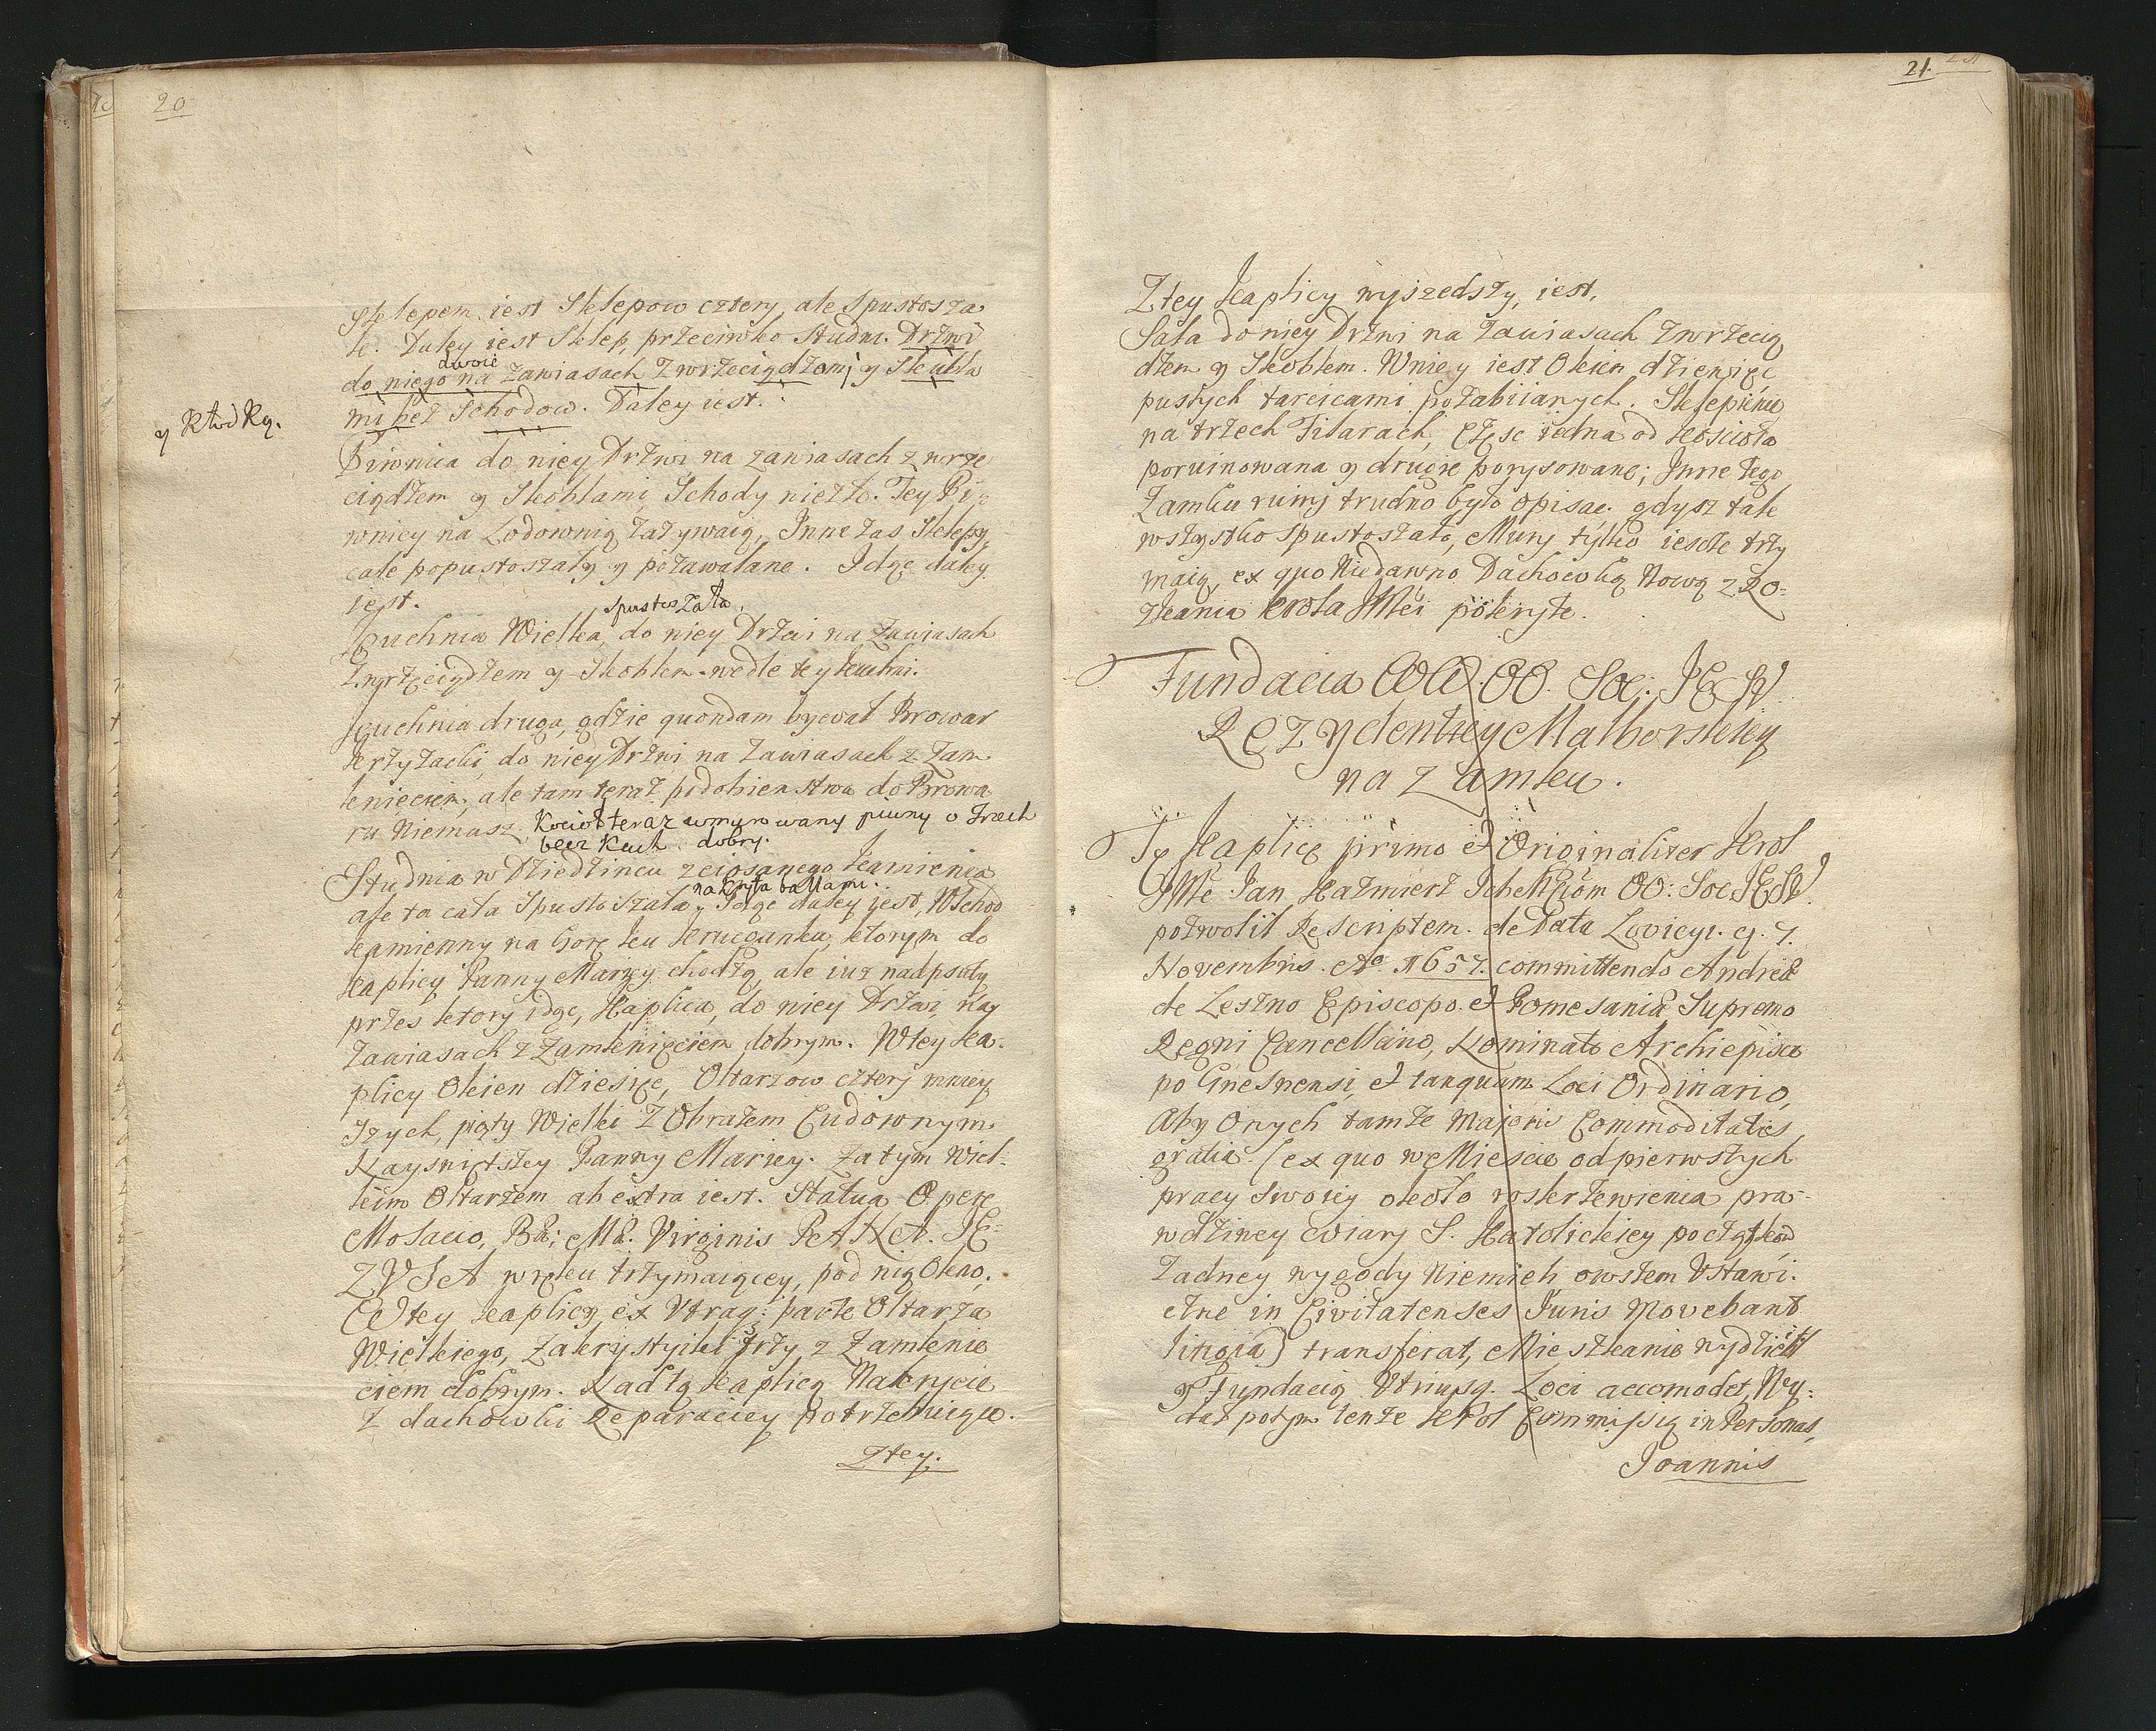 20
Sklepem iest Sklepow cztery, ale spustosza
łe. Daley iest Sklep, przeciwko Studni. Drzwi
dwoie
do niego na Zawiasach z wrzeciądzami y Skobla
mi bez Schodow. Daley iest.
y Kłodką.
Piwnica do niey Drzwi na zawiasach z wrze
ciądzem y Skoblami, Schody niezłe. Tey Pi=
wnicy na Lodownią zazywaią, Inne zas Sklepy,
całe popustoszały y pozawalane. Idąc daley
iest.
spustoszała,
Kuchnia Wielka, do niey Drzwi na Zawiasach
z wrzeciądzem y Skoblem wedle tey kuchni.
Kuchnia druga, gdzie quondam bywał Browar
krzyzacki, do niey Drzwi na Zawiasach z Zam
knieciem, ale tam teraz podobienstwa do Browa
ru Niemasz. Kocioł teraz wmurowany piwny o Trzech
beczkach dobry.
Studnia w Dziedzincu z ciosanego kamienia
nakryta ballami.
ale ta cała Spustoszała, Idąc daley iest, Wschod
kamienny na Gorę ku kruzganku, ktorym do
kaplicy Panny Maryey chodzą, ale iuz nadpsuty
przes ktory idąc, Kaplica, do niey Drzwi na
Zawiasach z Zamknięciem dobrym. W tey Ka-
plicy Okien dziesięc, Ołtarzow cztery mniey
szych, piąty Wielki z Obrazem Cudownym
Nayswiętszey Panny Mariey. Za tym Wiel-
kim Ołtarzem ab extra iest. Statua Opere
Mosaico, B: Mæ: Virginis PANA. IE-
ZUSA w ręku trzymaiącey, pod nią Okno.
W tey kaplicy, ex Utraq: parte Ołtarza
Wielkiego, Zakrystyiki trzy z Zamknie
ciem dobrym. Nad tą kaplicą Nakrycie
z dachowki Reparaciey potrzebuiące.
Z tey.
21.
Z tey Kaplicy wyszedszy, iest,
Sala do niey Drzwi na Zawiasach z wrzecią
dzem y Skoblem. W niey iest Okien dziewięc
pustych tarcicami pozabiianych. Sklepienie
na trzech Filarach, częsc iedna od kościoła
poruinowana y drugie porysowane; Inne tego
Zamku ruiny trudno było opisac. gdysz tak
wszystko spustoszało, Mury tylko ieszcze trzy
maią, ex quo Niedawno Dachowką Nową z Ro-
zkazania Krola JMci pokryte.
Fundacia WW. OO. Soc: JESU
Rezydentiey Malborskiey
na Zamku.
Tę Kaplicę primo et Originaliter Krol
JMć Jan Kazmierz Ich Mciom OO: Soc: JESU
pozwolił Rescriptem. de Data Lovicy. 7.
Novembris. Ao. 1657. committendo Andreæ
de Leszno Episcopo. et Pomesaniæ Supremo
Regni Cancellario, Nominato Archiepisco
po Gnesnensi, et tanquam Loci Ordinario,
Aby Onych tamże Majoris Commoditatis
gratia. (ex quo w Miescie od pierwszych
pracy swoiey około roskrzewienia pra-
wdziwey wiary S. Katolickiey początkow
zadney wygody Niemieli owszem Ustawi-
czne in Civitatenses Juris Movebant
litigia) transferat, Mieszkanie wydzieli
y Fundacią Utriusq. Loci accomodet, Wy-
dał potym tenże Krol Commissią in Personas,
Joannis